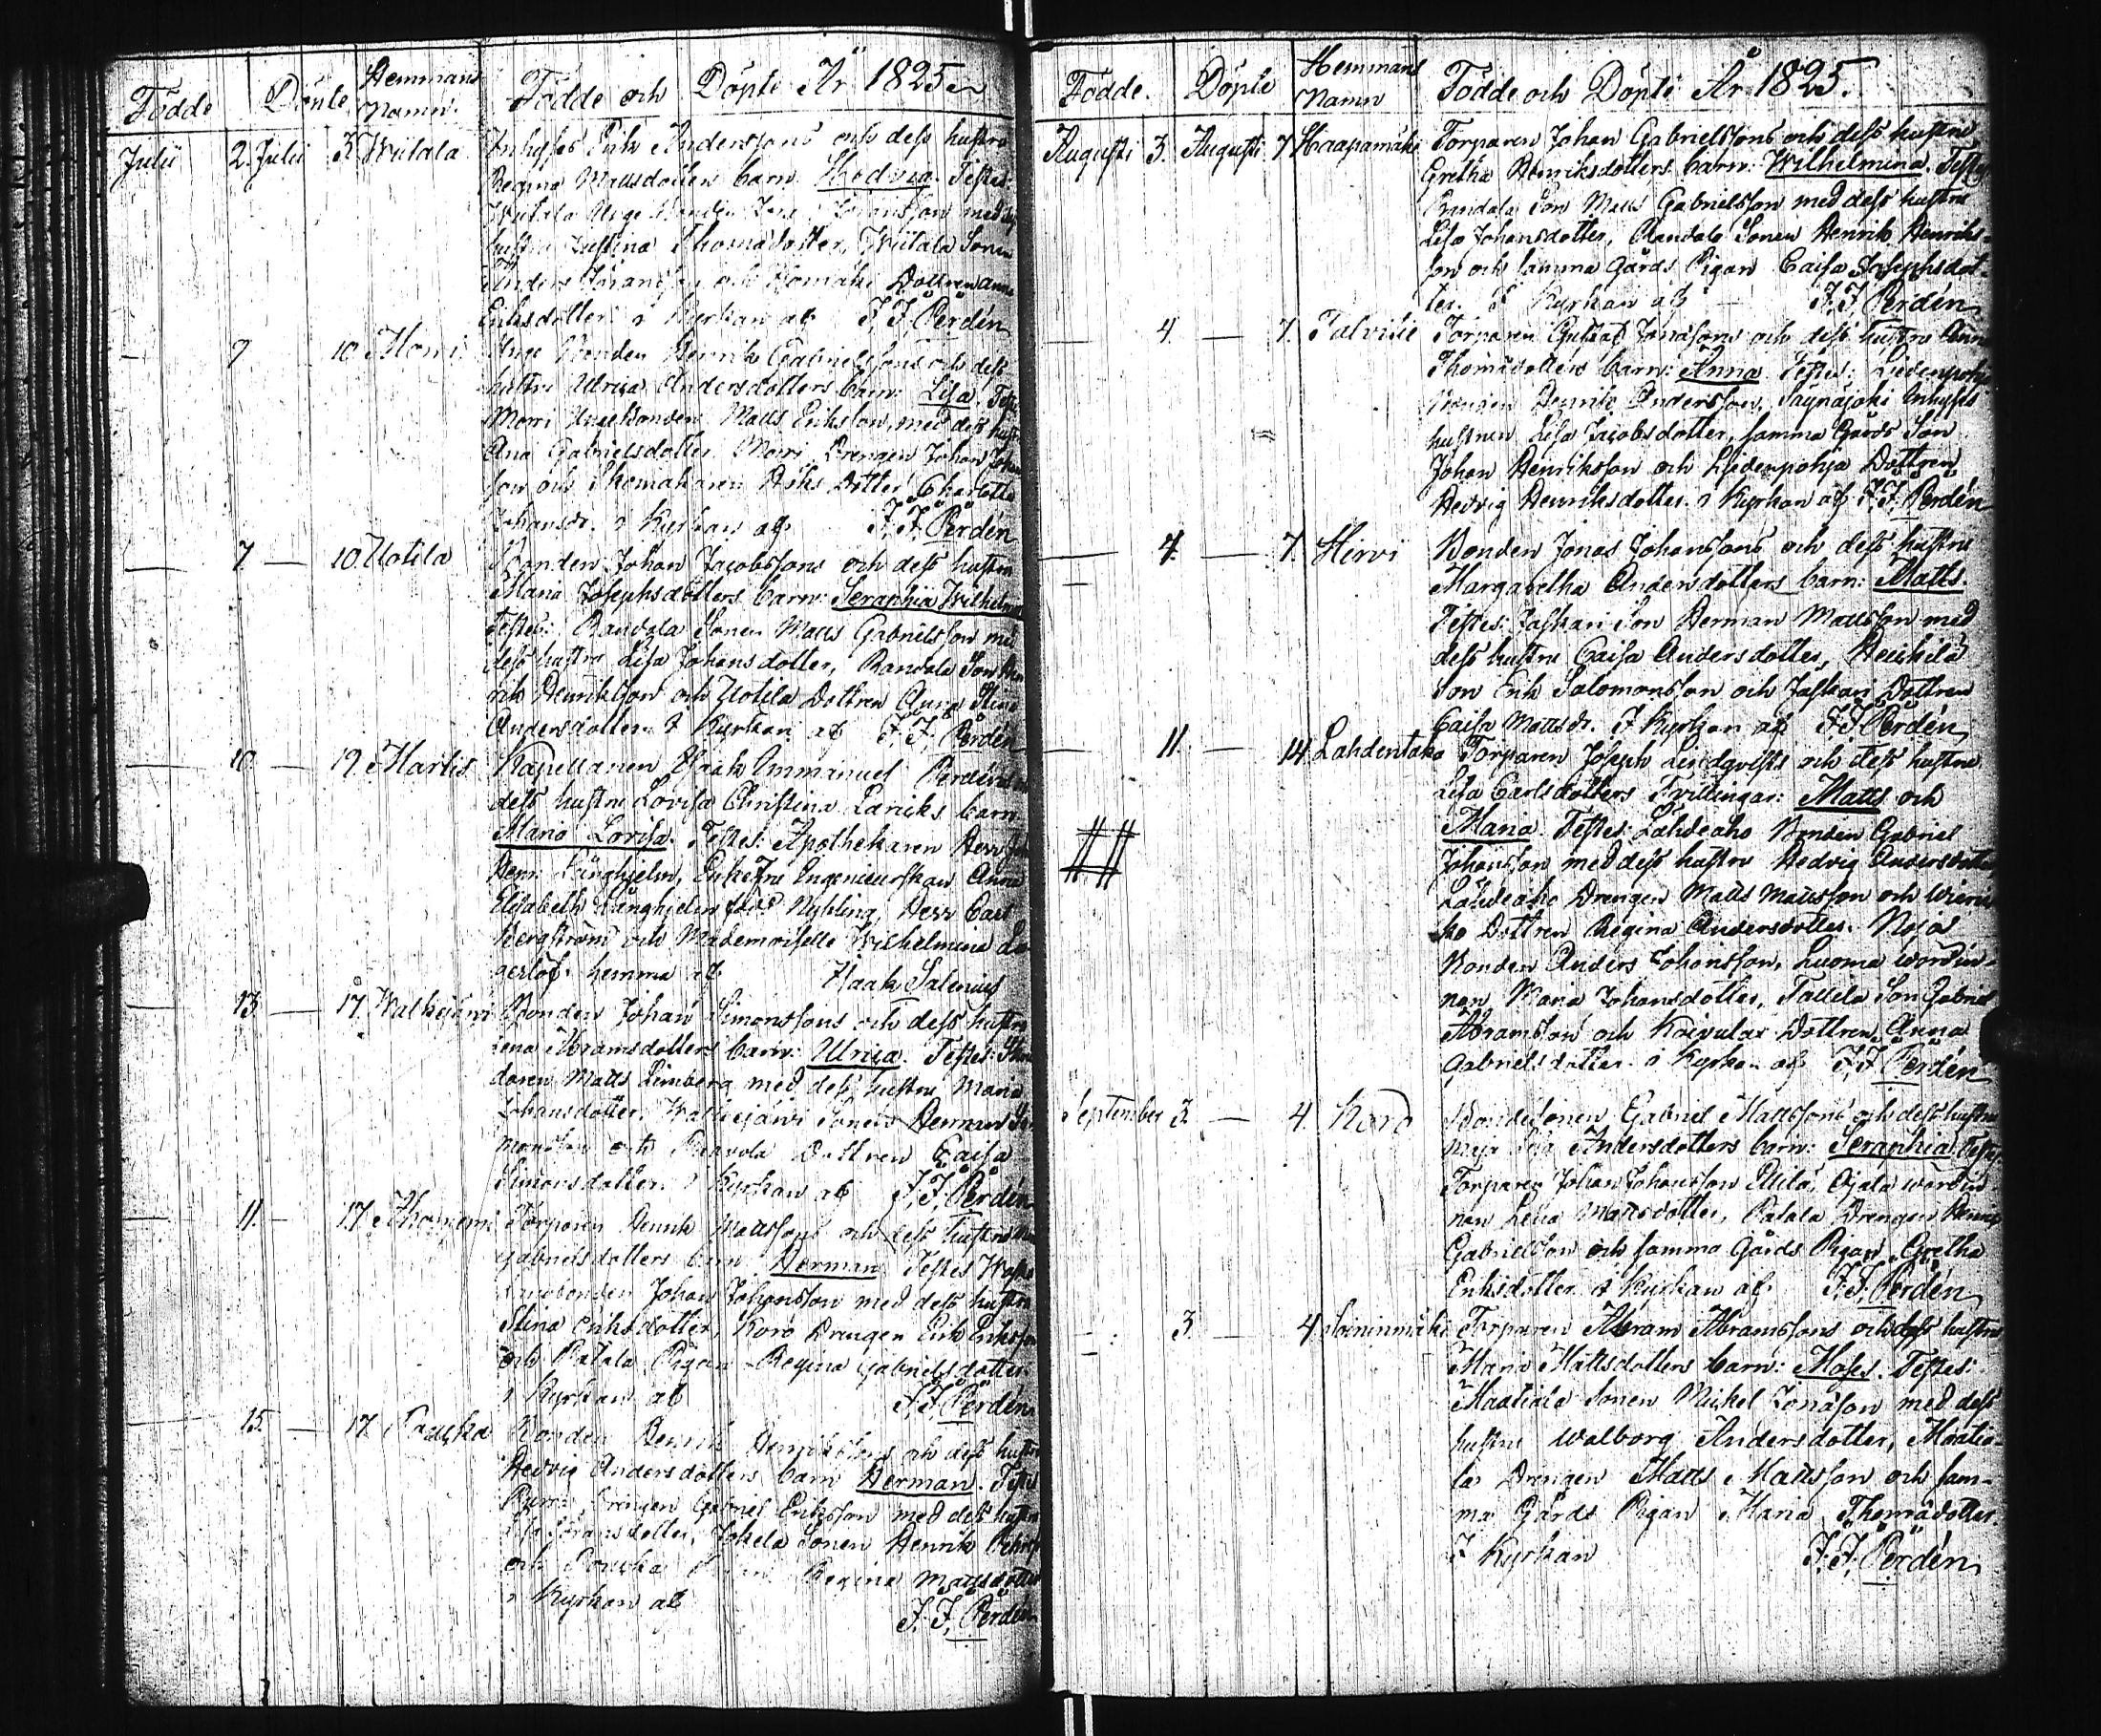 Födde Döpte Hemmans Namn. Födde och Döpte År 1825
Julii 2. Julii 3. Wiitala Inhyses Erik Anderssons och dess hustru
Regina Mattsdotters barn Hedvig. Testes:
Wiitala Unge Bonden Johansson med dess
hustru Justina Thomædotter, Wiitala Sonen
Anders Johansson och Dottren Anna
Eriksdotter. i Kyrkan af J. J. Perdén
— 7 10 Morri Unge Bonden Henrik Gabrielssons och dess
hustru Ulrica Andersdotters barn: Lisa. Testes
Morri Unge Bonden Matts Eriksson, med dess hustru
Ana Gabrielsdotter Morri Drengen Johan
son och Skomakaren Dotter Charlotta
Johansdr. i Kyrkan af J. J. Perdén
— 7. — 10. Uotila Bonden Johan Jacobssons och dess hustru
Maria Josephsdotters barn: Seraphia Wilhelmina
Testes: Randala Sonen Matts Gabrielsson med
dess hustru Lisa Johansdotter, Randala Son Hen
rik Henriksson och Uotila Dottren Anna Stina
Andersdotter. I Kyrkan af J. J. Perdén
— 10 — 19. Martis Kapellanen Isaak Emmanuel Perdéns
dess hustru Lovisa Christina barn
Maria Lovisa. Testes: Apothekaren Herr
Henr. Långhjelm, Enkefru Ingenieurskan Anna
Elisabeth Långhjelm född Nyhling, Herr Carl
Bergström och Mademoiselle Wilhelmina La
gerlöf. hemma af Isaak Salenius
— 13 — 17. Walkijärvi Bonden Johan Simonssons och dess hustru
Lena Abramsdotters barn: Ulrica. Testes:
Matts Limberg med dess hustru Maria
Johansdotter, Walkejärvi Sonen Herman Si
monsson och Dottren Caisa
Simonsdotter. i Kyrkan af J. J. Perdén
— 11. — 17. Torparen Henrik Mattssons och dess hustru
Gabrielsdotters barn Herman Testes
bonden Johan Johansson med dess hustru
Stina Eriksdotter, Koro Drengen Erik Eriksson
och Patala Pigan Regina Gabrielsdotter.
i Kyrkan af J. J. Perdén
— 15. — 17. Bonden Henrik Henrikssons och dess hustru
Hedvig Andersdotters barn Herman. Testes
Drengen Gabriel Eriksson med dess hustru
Lisa Johansdotter, Jokela Sonen Henrik
och Regina Mattsdotter
i Kyrkan af J. J. Perdén
Födde. Döpte Hemmans Namn Födde och Döpte År 1825.
Augusti 3. Augusti 7 Haapamäki Torparen Johan Gabrielssons och dess hustru
Gretha Henriksdotters barn: Wilhelmina. Testes
Randala Son Matts Gabrielsson med dess hustru
Lisa Johansdotter, Randala Sonen Henrik Henriks-
son och samma gårds Pigan Caisa Josephsdot-
ter. I Kyrkan af J. J. Perdén
— 4. — 7. Talvitie Torparen Gustaf Jonassons och dess hustru Anna
Thomædotters barn: Anna. Testes: Liedenpohja
Bonden Henrik Andersson, Säynäjoki Inhyses
hustrun Lisa Jacobsdotter, samma Gårds Son
Johan Henriksson och Liedenpohja Dottren
Hedvig Henriksdotter. i Kyrkan af J. J. Perdén
— 4. — 7. Hirvi Bonden Jonas Johanssons och dess hustru
Margaretha Andersdotters barn: Matts.
Testes: Jaskari Son Herman Mattsson med
dess hustru Caisa Andersdotter, Heikkilä
Son Erik Salomonsson och Jaskari Dottren
Caisa Mattsdr. I Kyrkan af J. J. Perdén
— 11. — 14. Lahdentaka Torparen Joseph Lindqvists och dess hustru
Lisa Carlsdotters Tvillingar: Matts och
Maria. Testes: Lahdeaho Bonden Gabriel
Johansson med dess hustru Hedvig Andersdotter
Lahdeaho Drengen Matts Mattsson och
Dottren Regina Andersdotter.
Bonden Anders Johansson, Luoma wärdin-
nan Maria Johansdotter, Tallila Son Gabriel
Abramsson och Dottren Anna
Gabrielsdotter. i Kyrkan af J. J. Perdén
September 3. — 4. Koro Bondesonen Gabriel Mattssons och dess hustru
Maja Andersdotters barn: Seraphia. Testes
Torparen Johan Johansson Ellilä, Ojala wärdin
nan Lena Mattsdotter, Patala Drengen
Gabrielsson och samma Gårds Pigan Gretha
Eriksdotter. i Kyrkan af J. J. Perdén
3. — 4. Soininmäki Torparen Abram Abramssons och dess hustru
Maria Mattsdotters barn: Moses. Testes:
Maatiala Sonen Mickel Jonasson med dess
hustru Walborg Andersdotter, Maatia-
la Drengen Matts Mattsson och sam-
ma Gårds Pigan Maria Thomædotter
I Kyrkan J. J. Perdén